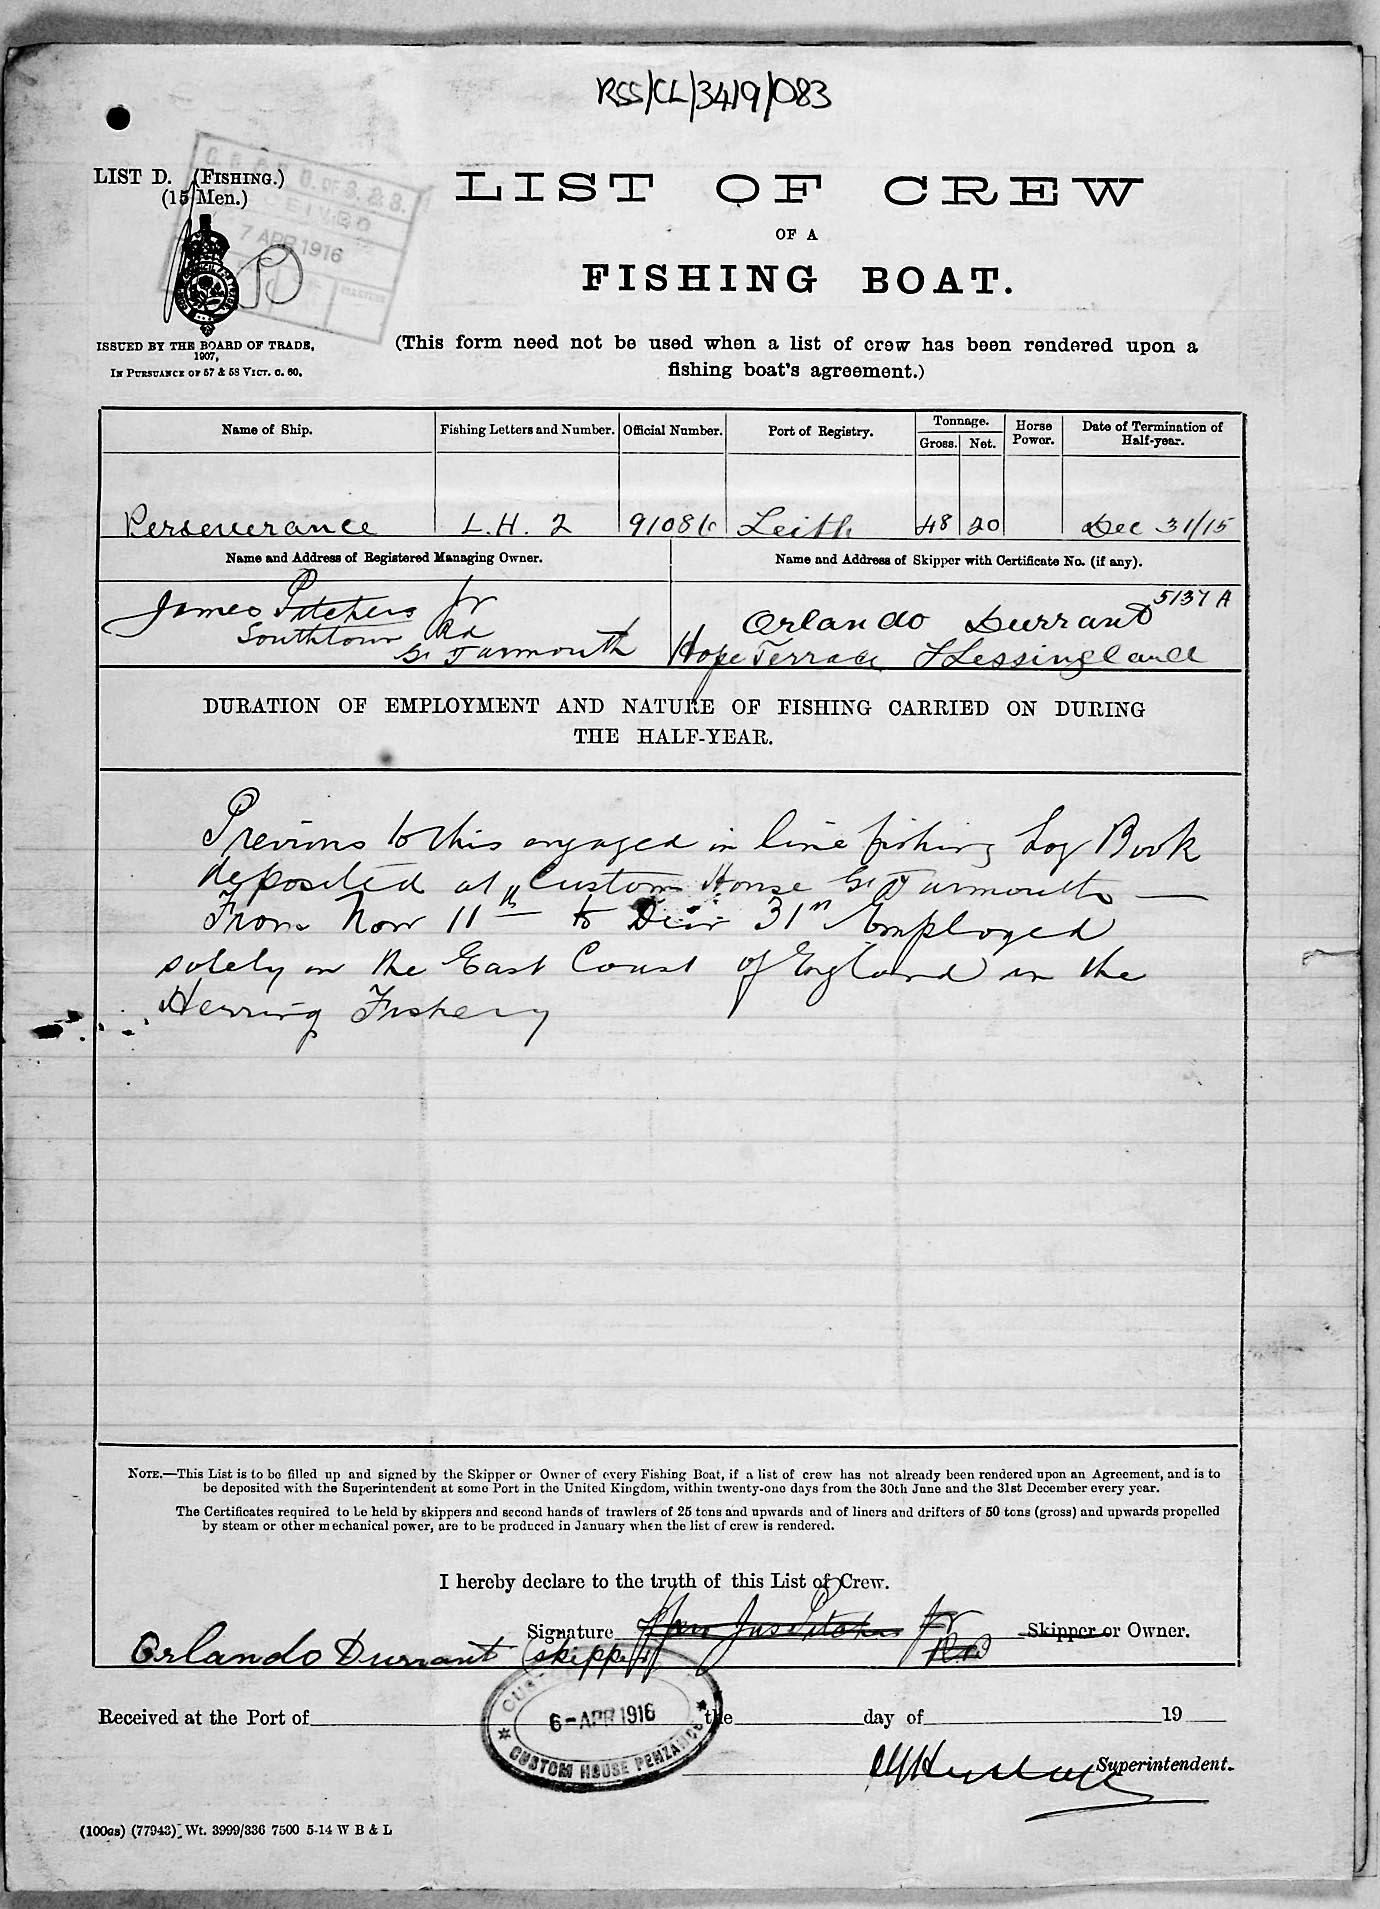 RSS/CL/3419/083
LIST D. (FISHING.)
(15 Men.)
7 APR 1916
LIST OF CREW
OF A
FISHING BOAT.
ISSUED BY THE BOARD OF TRADE,
1907,
IN PURSUANCE OF 57 & 58 VICT. C. 60.
(This form need not be used when a list of crew has been rendered upon a
fishing boat's agreement.)
Name of Ship. Fishing Letters and Number. Official Number. Port of Registry. Tonnage. Gross. Net. Horse Power. Date of Termination of Half-year.
Perseverance L.H. 2 91086 Leith 48 20 Dec 31/15
Name and Address of Registered Managing Owner. Name and Address of Skipper with Certificate No. (if any).
James Pitchers Jr
Southtown Rd
Gt Yarmouth
5137 A
Orlando Durrant
Hope Terrace Kessingland
DURATION OF EMPLOYMENT AND NATURE OF FISHING CARRIED ON DURING
THE HALF-YEAR.
Previous to this engaged in line fishing Log Book
deposited at Custom House Gt Yarmouth —
From Nov 11th to Decr 31st Employed
solely on the East Coast of England in the
Herring Fishery
NOTE.—This List is to be filled up and signed by the Skipper or Owner of every Fishing Boat, if a list of crew has not already been rendered upon an Agreement, and is to
be deposited with the Superintendent at some Port in the United Kingdom, within twenty-one days from the 30th June and the 31st December every year.
The Certificates required to be held by skippers and second hands of trawlers of 25 tons and upwards and of liners and drifters of 50 tons (gross) and upwards propelled
by steam or other mechanical power, are to be produced in January when the list of crew is rendered.
I hereby declare to the truth of this List of Crew.
Signature Jas Pitchers Jr Skipper or Owner.
Orlando Durrant (skipper)
Received at the Port of the day of 19
6-APR 1916
CUSTOM HOUSE PENZANCE
Superintendent.
(100as) (77943) Wt. 3999/336 7500 5-14 W B & L